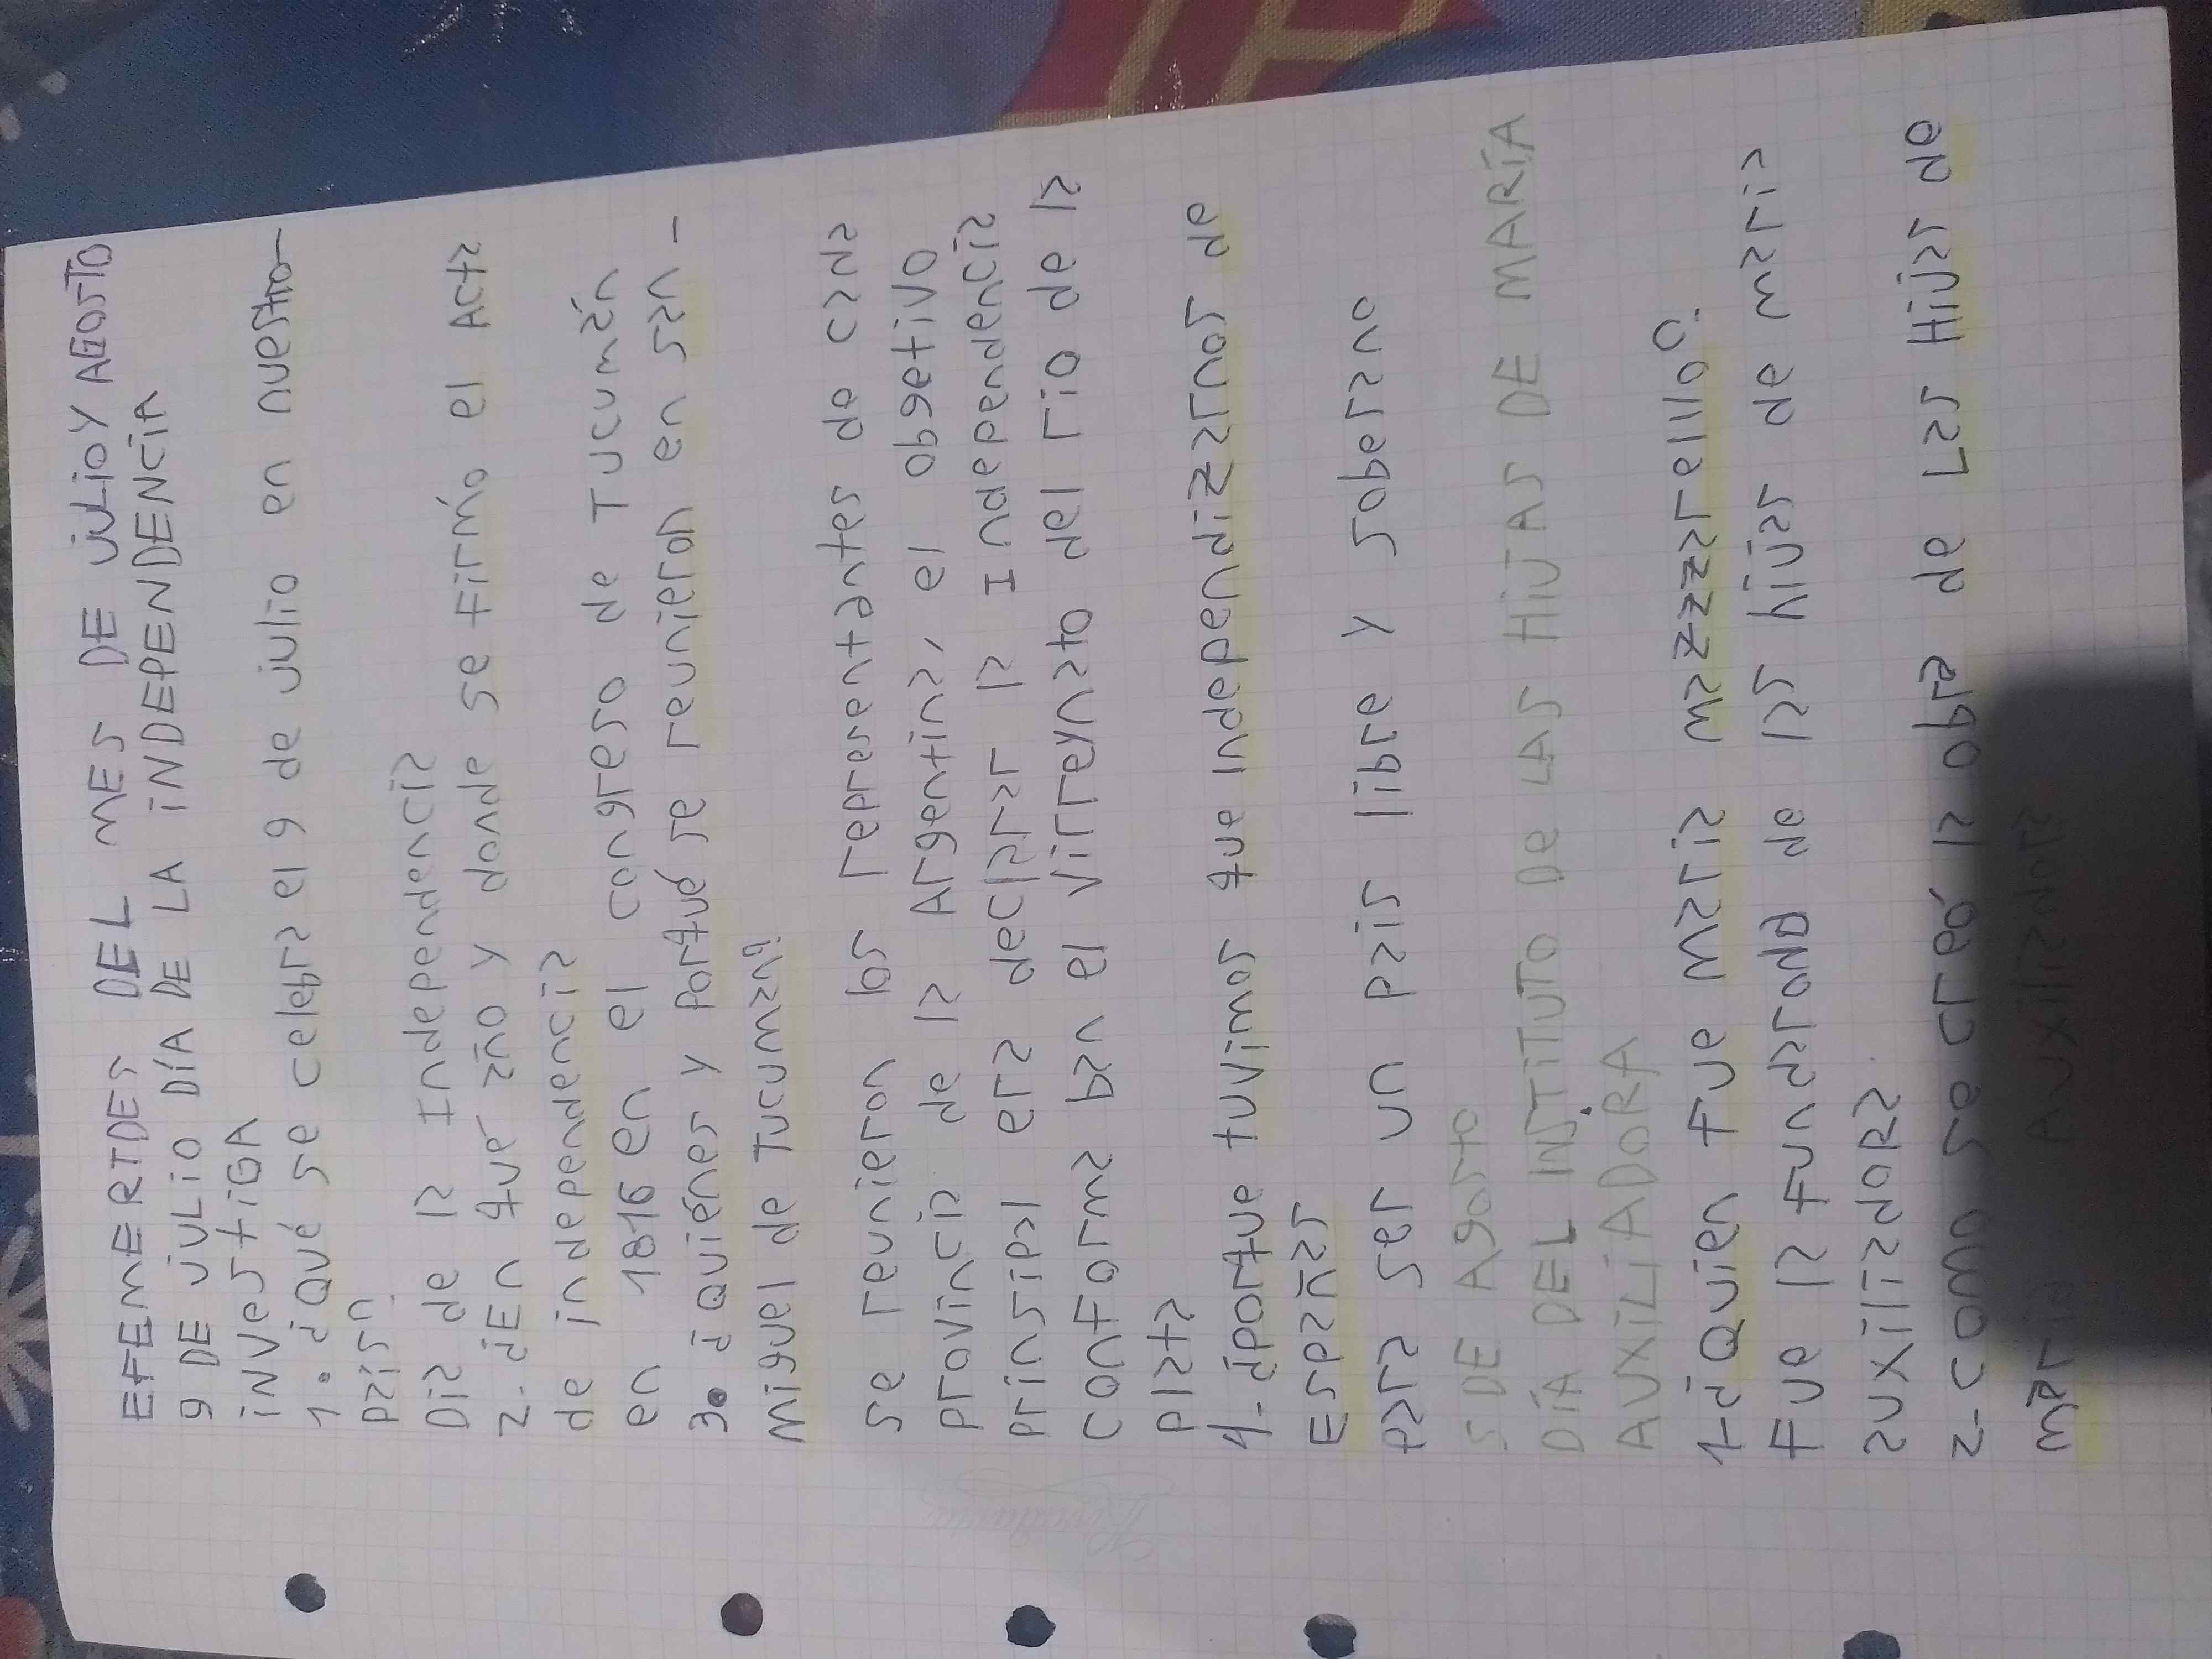 EFEMERTDES DEL MES DE JULIO Y AGOSTO
9 DE JULIO DÍA DE LA INDEPENDENCIA
INVESTIGA
1. ¿Qué se celebra el 9 de julio en nuestro
país?
Día de la Independencia
2. ¿En qué año y donde se firmo el Acta
de independencia
en 1816 en el congreso de Tucumán
3. ¿Quiénes y porqué se reunieron en san-
miguel de Tucuman?
se reunieron los representantes de cada
provincia de la Argentina, el obgetivo
prinsipal era declarar la Independencia
conforma ban el virreynato del rio de la
plata
4-¿porque tuvimos que independizarnos de
España
para ser un pais libre y soberano
5 DE Agosto
DÍA DEL INSTITUTO DE LAS HIJAS DE MARÍA
AUXILIADORA
1-¿Quien fue Maria mazzzarello?
Fue la fundarona de las hijas de maria
auxiliadora
2-como se creó la obra de Las Hijas de
María Auxiliadora